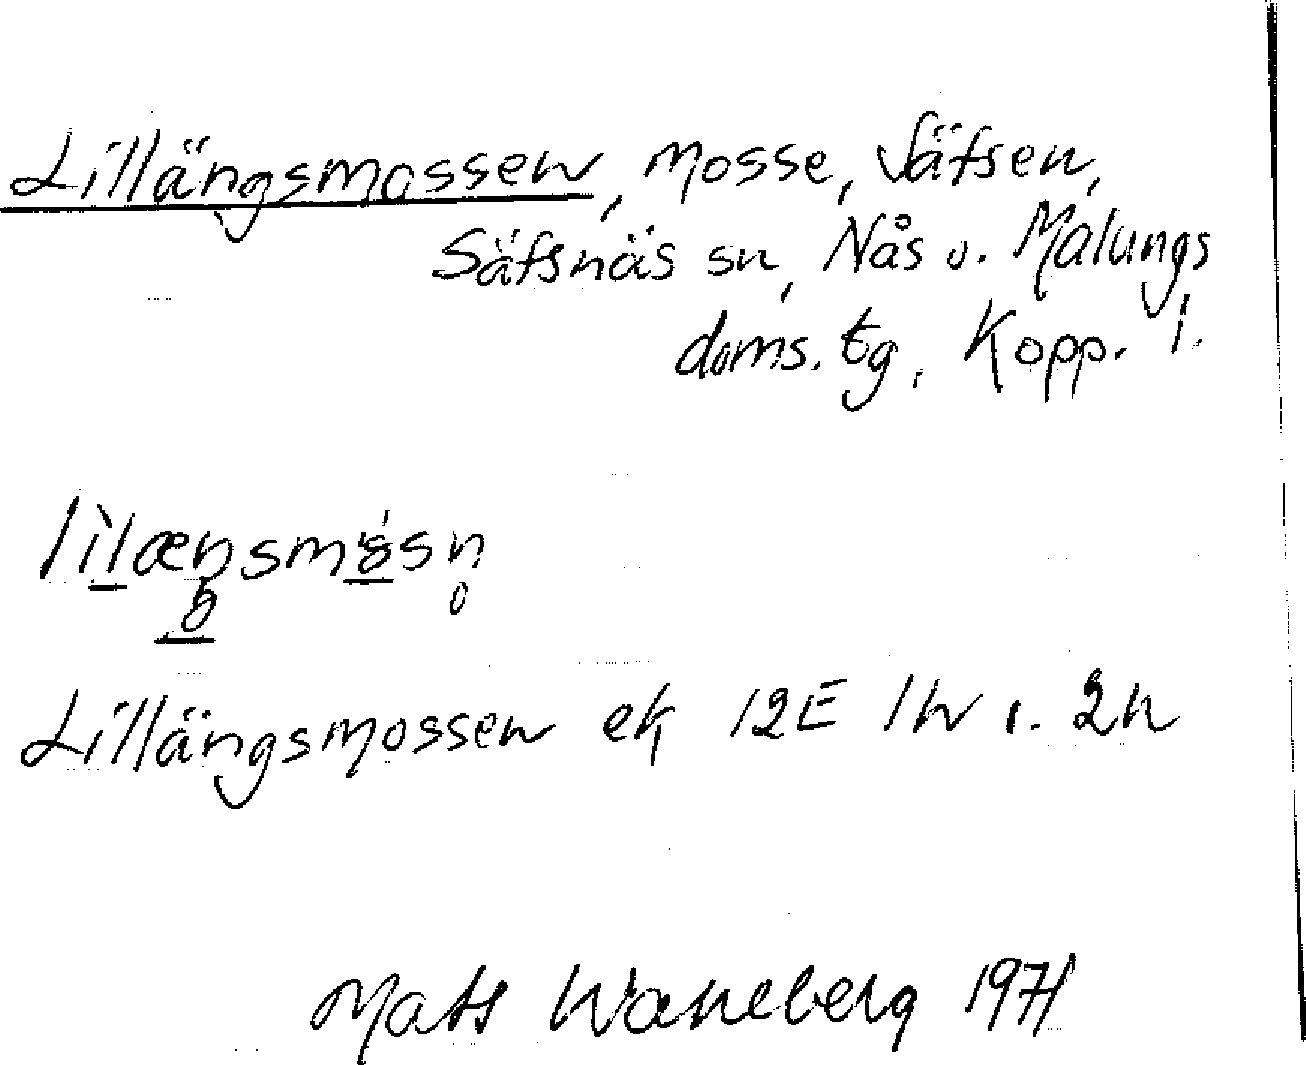 Lillängsmossen, mosse, Säfsen,
Säfsnäs sn, Nås o. Malungs
doms. tg, Kopp. l.
Lillängsmossen ek 12E 1h o. 2h
Mats Wahlberg 1971